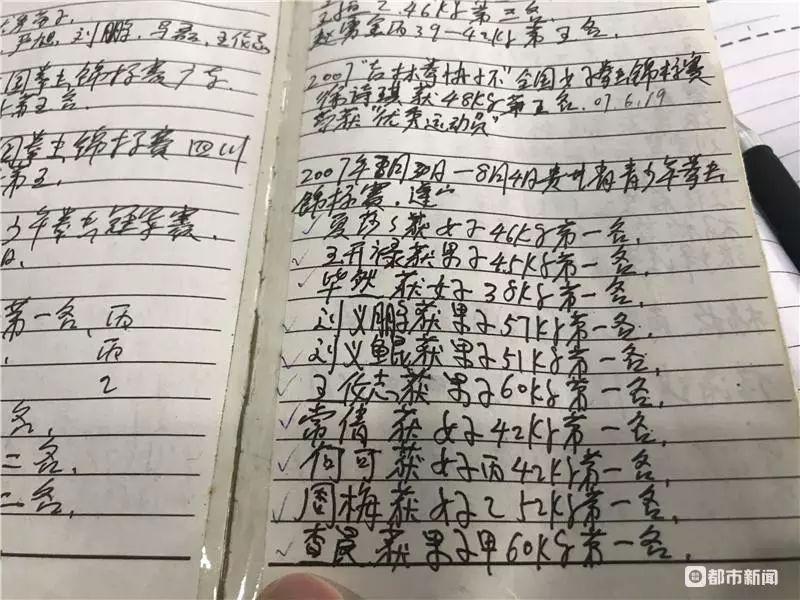 严旭、刘鹏、马磊、王俊志
国拳击锦标赛广东
第五名.
国拳击锦标赛四川
第五.
少年拳击冠军赛.
第一名, 丙
丙
乙
名,
二名.
二名,
2.46Kg第三名
39-42Kg第五名.
2007"吉林 杯"全国女子拳击锦标赛
徐诗琪获48Kg第五名. 07.6.19
荣获"优秀运动员"
2007年 月 日—8月4日贵州省青少年拳击
锦标赛. 遵
夏 获女子46Kg第一名,
王开禄获男子45Kg第一名,
毕然获女子38Kg第一名,
刘义鹏获男子57Kg第一名.
刘义鲲获男子51Kg第一名,
王俊志获男子60Kg第一名,
常倩获女子42Kg第一名,
何可获女子丙42Kg第一名,
周梅获女子乙52Kg第一名,
查 获男子甲60Kg第一名.
都市新闻